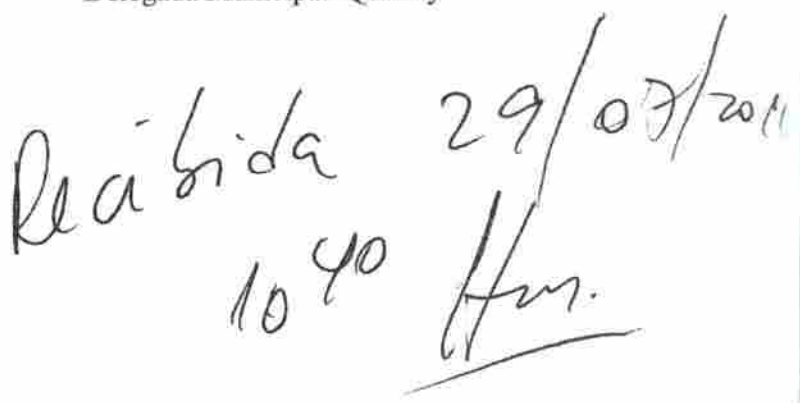 Recibida 29/07/2011
10 40 Hrs.